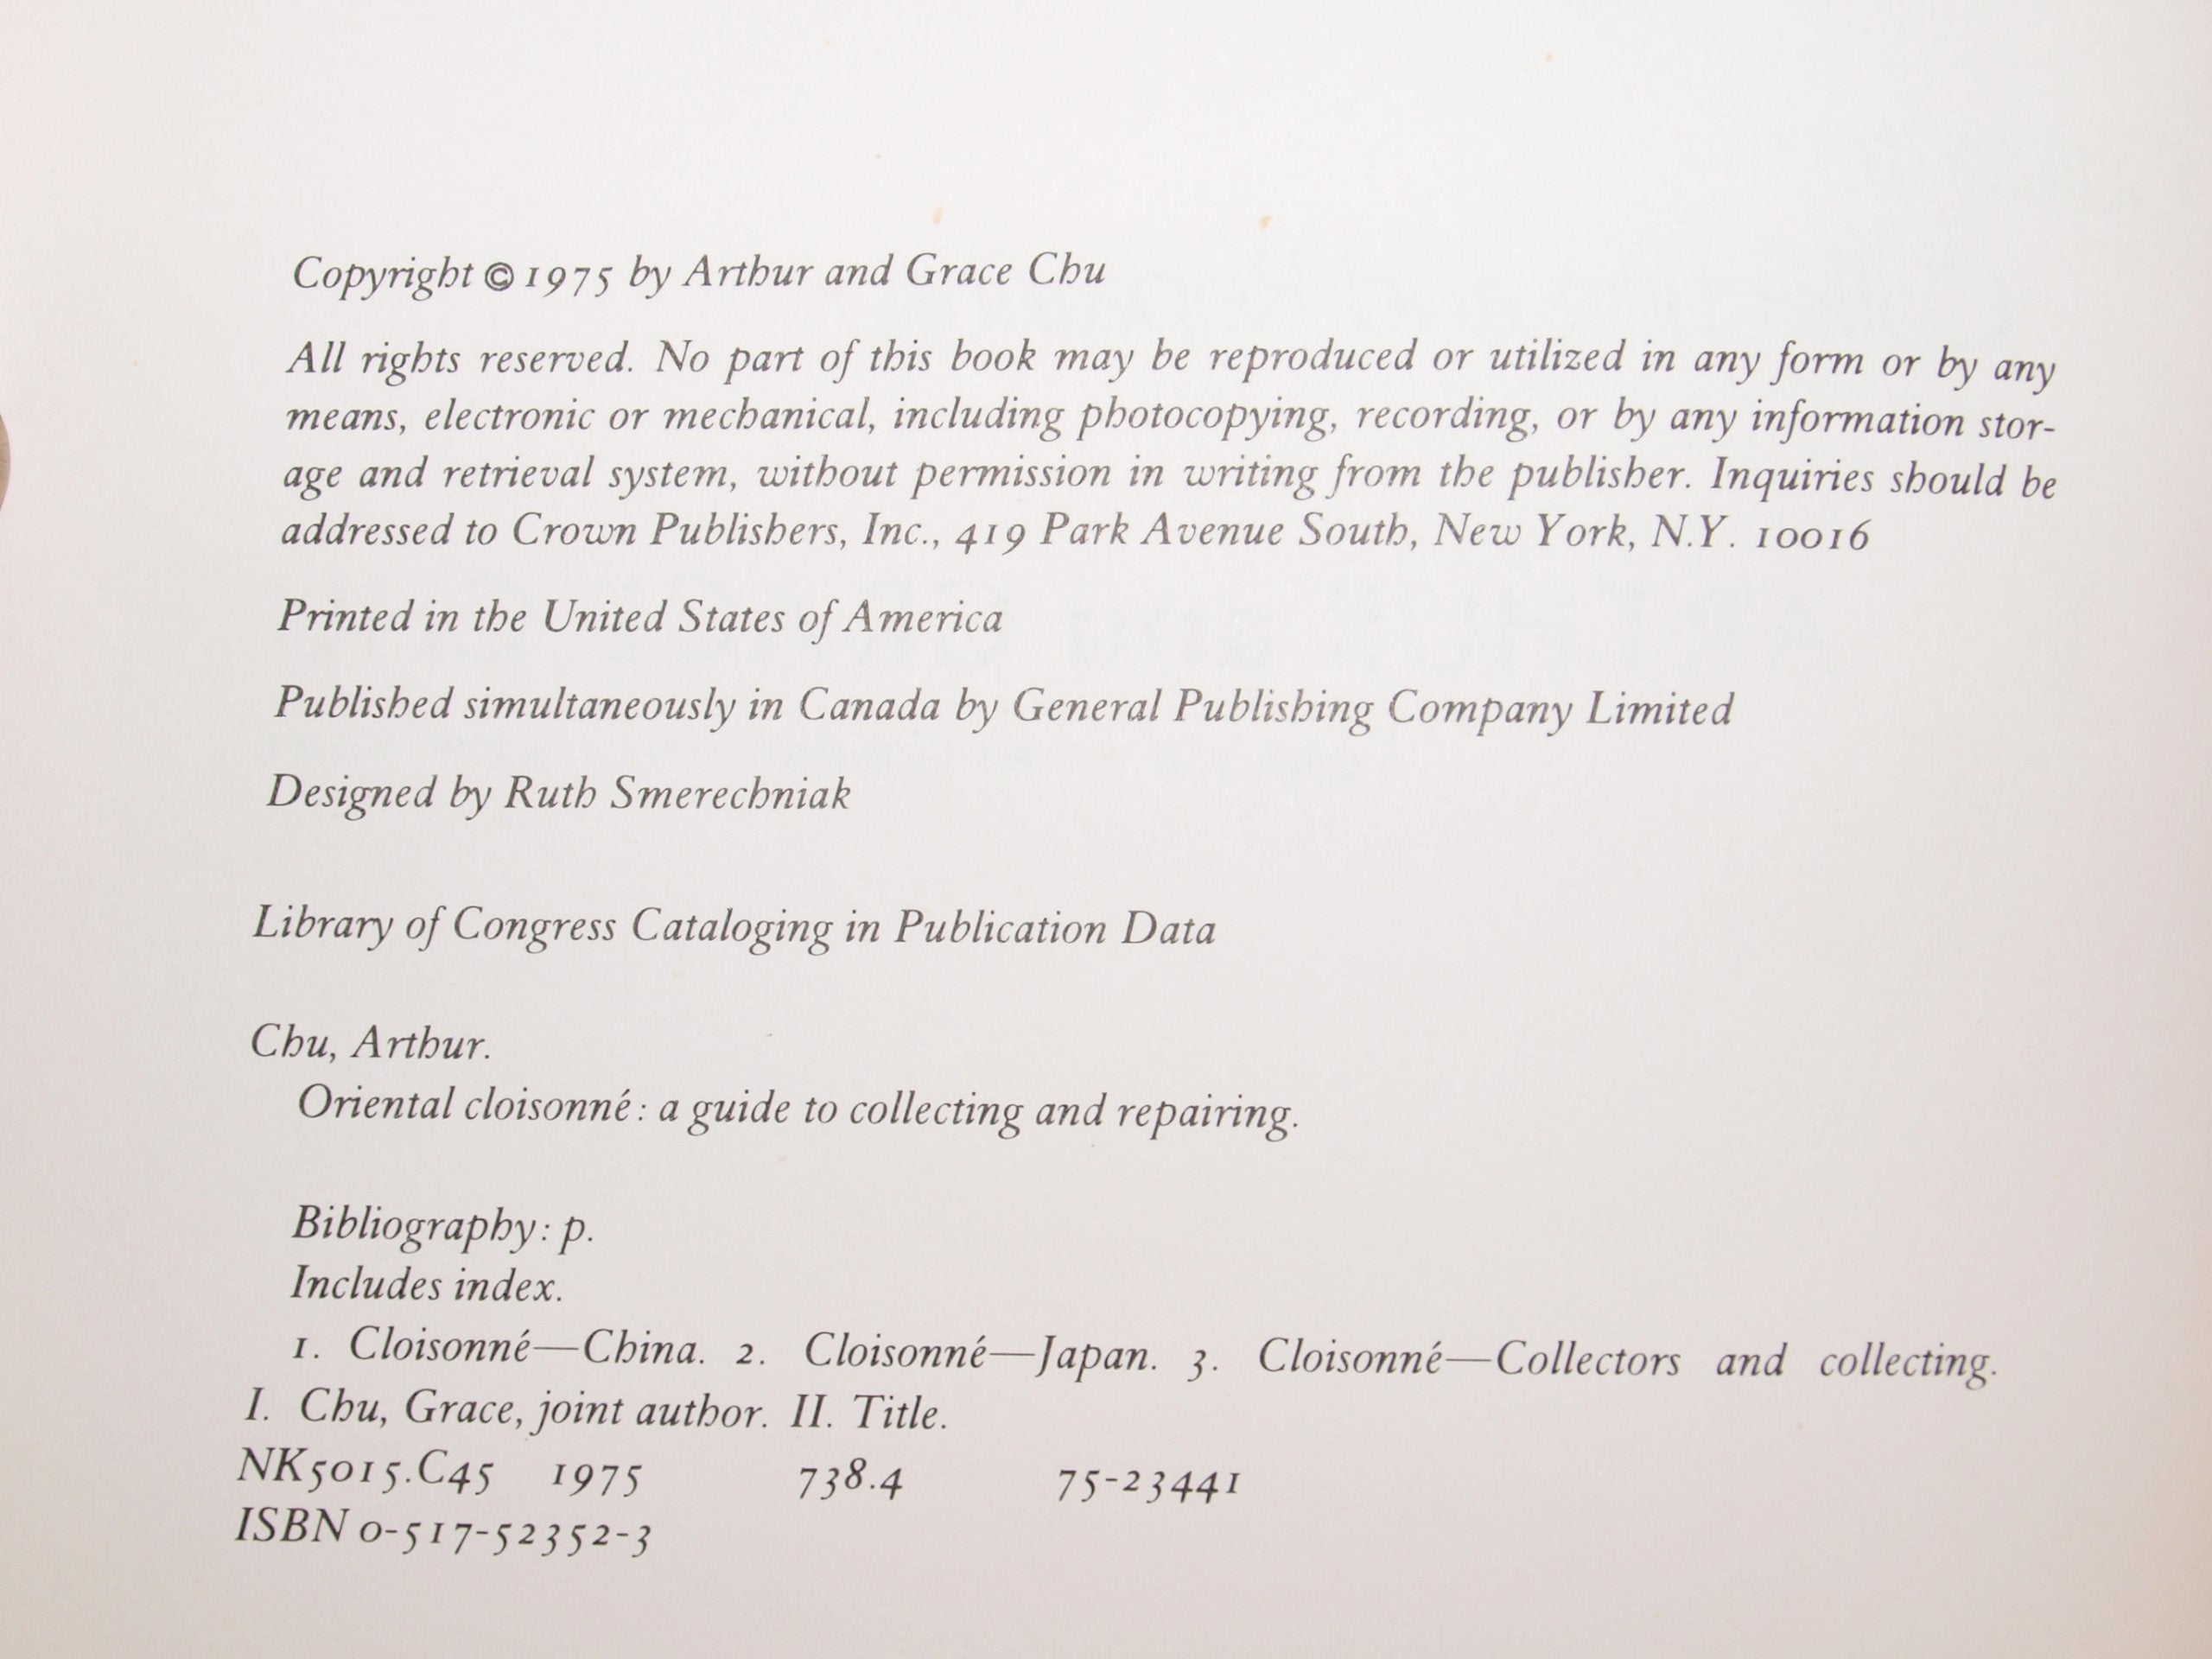 Copyright © 1975 by Arthur and Grace Chu
All rights reserved. No part of this book may be reproduced or utilized in any form or by any
means, electronic or mechanical, including photocopying, recording, or by any information stor-
age and retrieval system, without permission in writing from the publisher. Inquiries should be
addressed to Crown Publishers, Inc., 419 Park Avenue South, New York, N.Y. 10016
Printed in the United States of America
Published simultaneously in Canada by General Publishing Company Limited
Designed by Ruth Smerechniak
Library of Congress Cataloging in Publication Data
Chu, Arthur.
Oriental cloisonné: a guide to collecting and repairing.
Bibliography: p.
Includes index.
1. Cloisonné—China. 2. Cloisonné—Japan. 3. Cloisonné—Collectors and collecting.
I. Chu, Grace, joint author. II. Title.
NK5015.C45 1975 738.4 75-23441
ISBN 0-517-52352-3